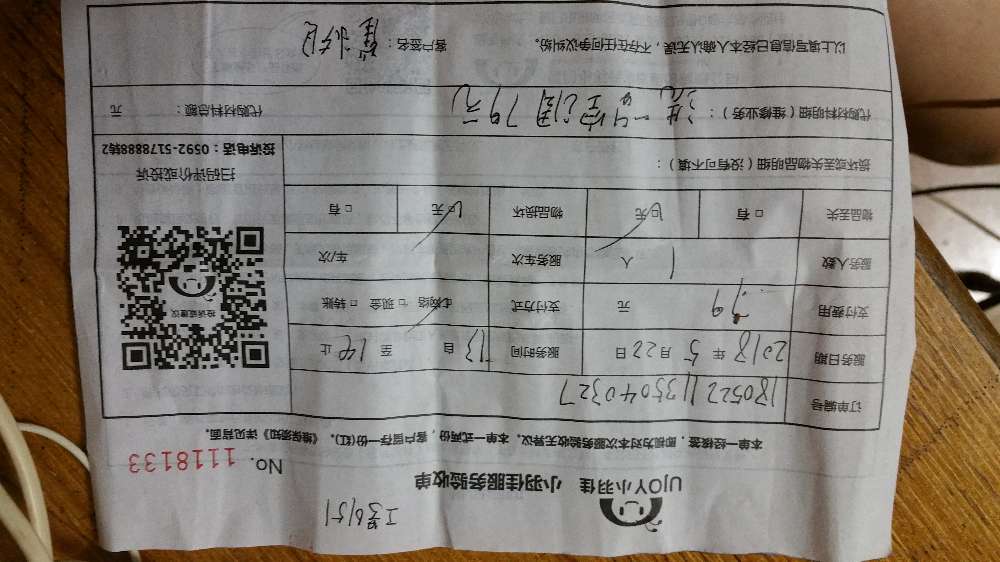 工号6151
UJOY小羽佳 小羽佳服务验收单
No. 1118133
本单一经核签，即视为对本次服务验收无异议。本单一式两份，客户留存一份(红)。《维保须知》详见背面。
订单编号 1805221135040327
服务日期 2018年5月22日 服务时间 自13至14止
支付费用 79元 支付方式 ☑网络 □现金 □转账
服务人数 1人 服务车次 车/次
物品丢失 □有 ☑无 物品损坏 ☑无 □有
投诉或建议
扫码评价或投诉
投诉电话：0592-5178888转2
损坏或丢失物品明细（没有可不填）：
代购材料明细（维修业务）：洗一台空调79元 代购材料总额： 元
以上填写信息已经本人确认无误，不存在任何争议纠纷。 客户签名：